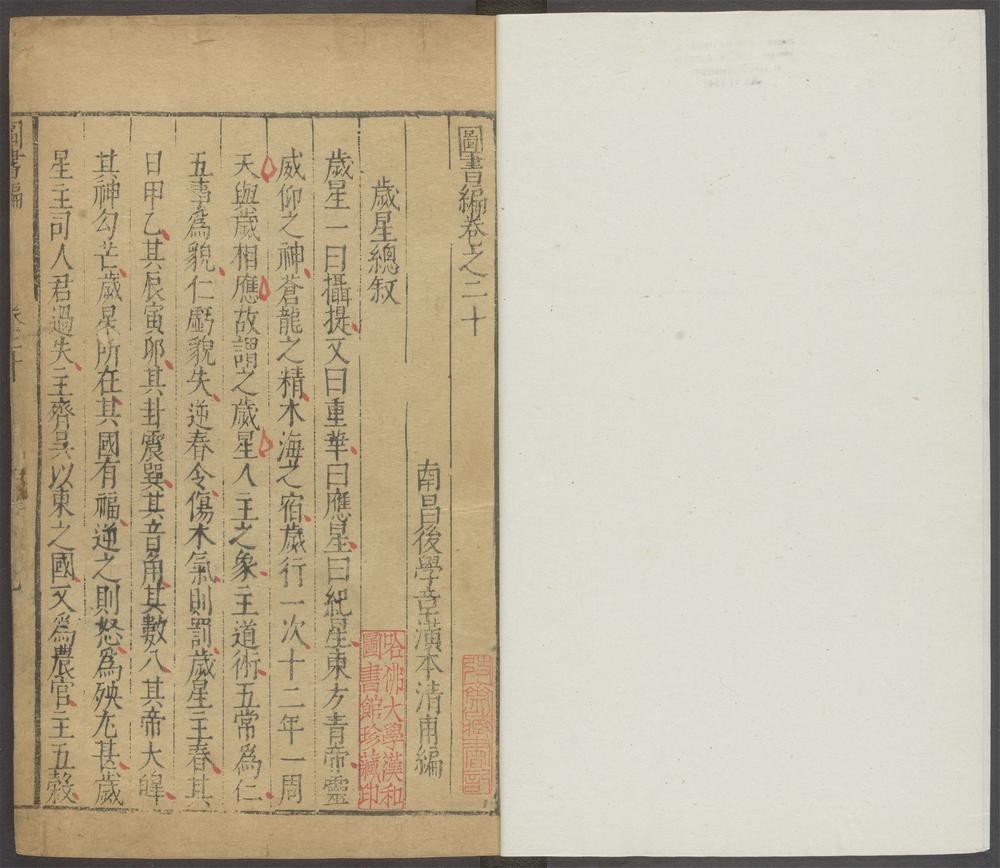 圖書編卷之二十
南昌後學章潢本清甫編
哈佛大學漢和
圖書館珍藏印
歲星總叙
歲星一曰攝提又曰重華曰應星曰紀星東方青帝靈
威仰之神蒼龍之精木海之宿歲行一次十二年一周
天與歲相應故謂之歲星人主之象主道術五常爲仁
五事爲貌仁虧貌失逆春令傷木氣則罰歲星主春其
日甲乙其辰寅卯其卦震巽其音角其數八其帝大皡
其神勾芒歲星所在其國有福逆之則怒爲殃尤甚歲
星主司人君過失主齊吳以東之國又爲農官主五穀
圖書編
卷之二十